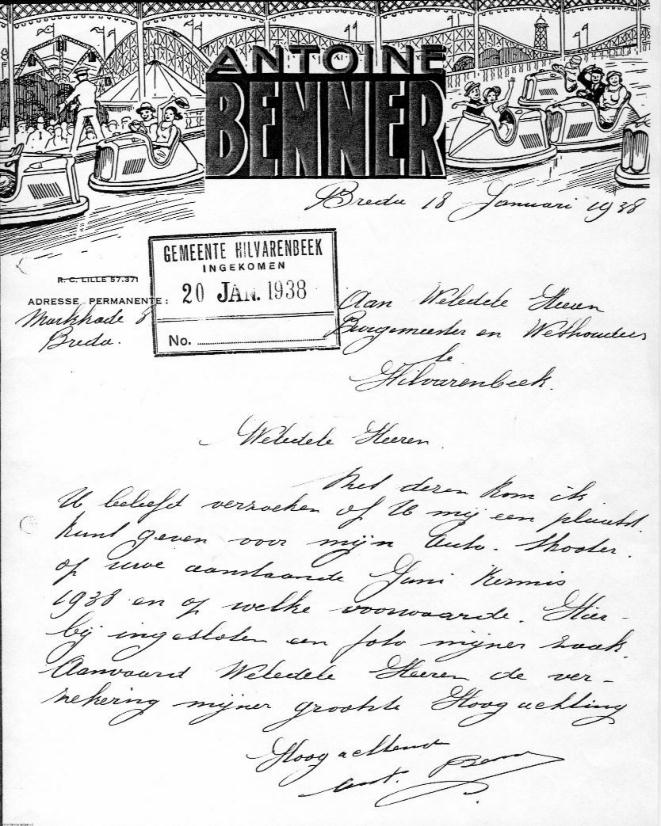 ANTOINE
BENNER
Breda 18 Januari 1938
GEMEENTE HILVARENBEEK
INGEKOMEN
20 JAN. 1938
No.
R. C. LILLE 57.371
ADRESSE PERMANENTE:
Markkade 8
Breda.
Aan Weledele Heeren
Burgemeester en Wethouders
te
Hilvarenbeek.
Weledele Heeren
Met dezen kom ik
U beleefd verzoeken of U mij een plaats
kunt geven voor mijn Auto. Skooter.
op uwe aanstaande Juni Kermis
1938 en op welke voorwaarde. Hier-
bij ingesloten een foto mijner zaak.
Aanvaard Weledele Heeren de ver-
zekering mijner grootste Hoogachting
Hoogachtend
Ant.